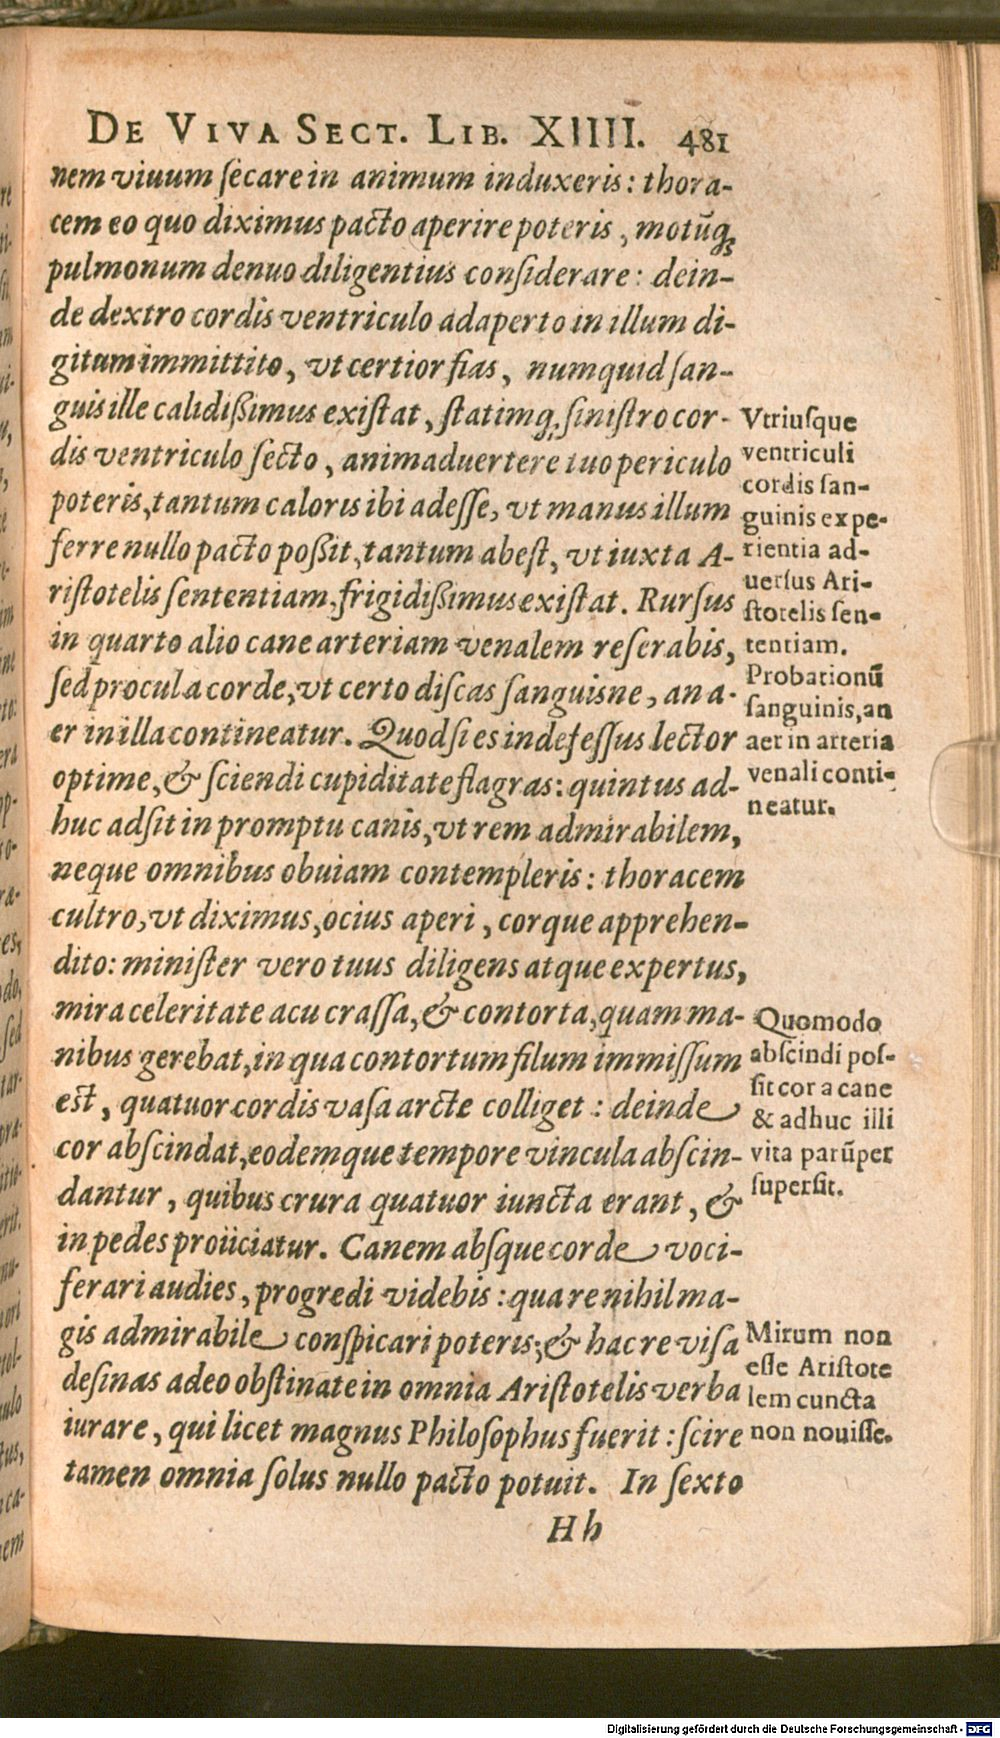 DE VIVA SECT. LIB. XIIII. 481
nem viuum ſecare in animum induxeris: thora-
cem eo quo diximus pacto aperire poteris, motūq́ꝫ
pulmonum denuo diligentius conſiderare: dein-
de dextro cordis ventriculo adaperto in illum di-
gitum immittito, vt certior fias, numquid ſan-
guis ille calidißimus exiſtat, ſtatimq́, ſiniſtro cor-
dis ventriculo ſecto, animaduertere tuo periculo
poteris, tantum caloris ibi adeſſe, vt manus illum
ferre nullo pacto poßit, tantum abeſt, vt iuxta A-
riſtotelis ſententiam, frigidißimus exiſtat. Rurſus
in quarto alio cane arteriam venalem reſerabis,
ſed procul a corde, vt certo diſcas ſanguisne, an a-
er in illa contineatur. Quod ſi es indefeſſus lector
optime, & ſciendi cupiditate flagras: quintus ad-
huc adſit in promptu canis, vt rem admirabilem,
neque omnibus obuiam contempleris: thoracem
cultro, vt diximus, ocius aperi, corque apprehen-
dito: miniſter vero tuus diligens atque expertus,
mira celeritate acu craſſa, & contorta, quam ma-
nibus gerebat, in qua contortum filum immiſſum
est, quatuor cordis vaſa arcte colliget: deinde
cor abſcindat, eodemque tempore vincula abſcin-
dantur, quibus crura quatuor iuncta erant, &
in pedes proiiciatur. Canem abſque corde voci-
ferari audies, progredi videbis: qua re nihil ma-
gis admirabile conſpicari poteris; & hac re viſa
deſinas adeo obſtinate in omnia Ariſtotelis verba
iurare, qui licet magnus Philoſophus fuerit: ſcire
tamen omnia ſolus nullo pacto potuit. In ſexto
Hh
Vtriuſque
ventriculi
cordis ſan-
guinis expe-
rientia ad-
uerſus Ari-
ſtotelis ſen-
tentiam.
Probationū
ſanguinis, an
aer in arteria
venali conti-
neatur.
Quomodo
abſcindi poſ-
ſit cor a cane
& adhuc illi
vita parūper
ſuperſit.
Mirum non
eſſe Ariſtote
lem cuncta
non nouiſſe.
Digitalisierung gefördert durch die Deutsche Forschungsgemeinschaft - DFG